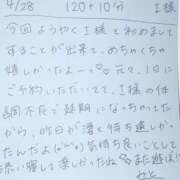 4/28 120+10分 I様
今回ようやくI様と初めまして
することが出来て、めちゃくちゃ
嬉しかったよー♡♡元々、1日に
ご予約いただいてて、I様の体
調不良で延期になっちゃってた
から、昨日が凄く待ち遠しかっ
たんだよ(^^)気持ち良いことして
添い寝して楽しかったね また遊ぼ!!